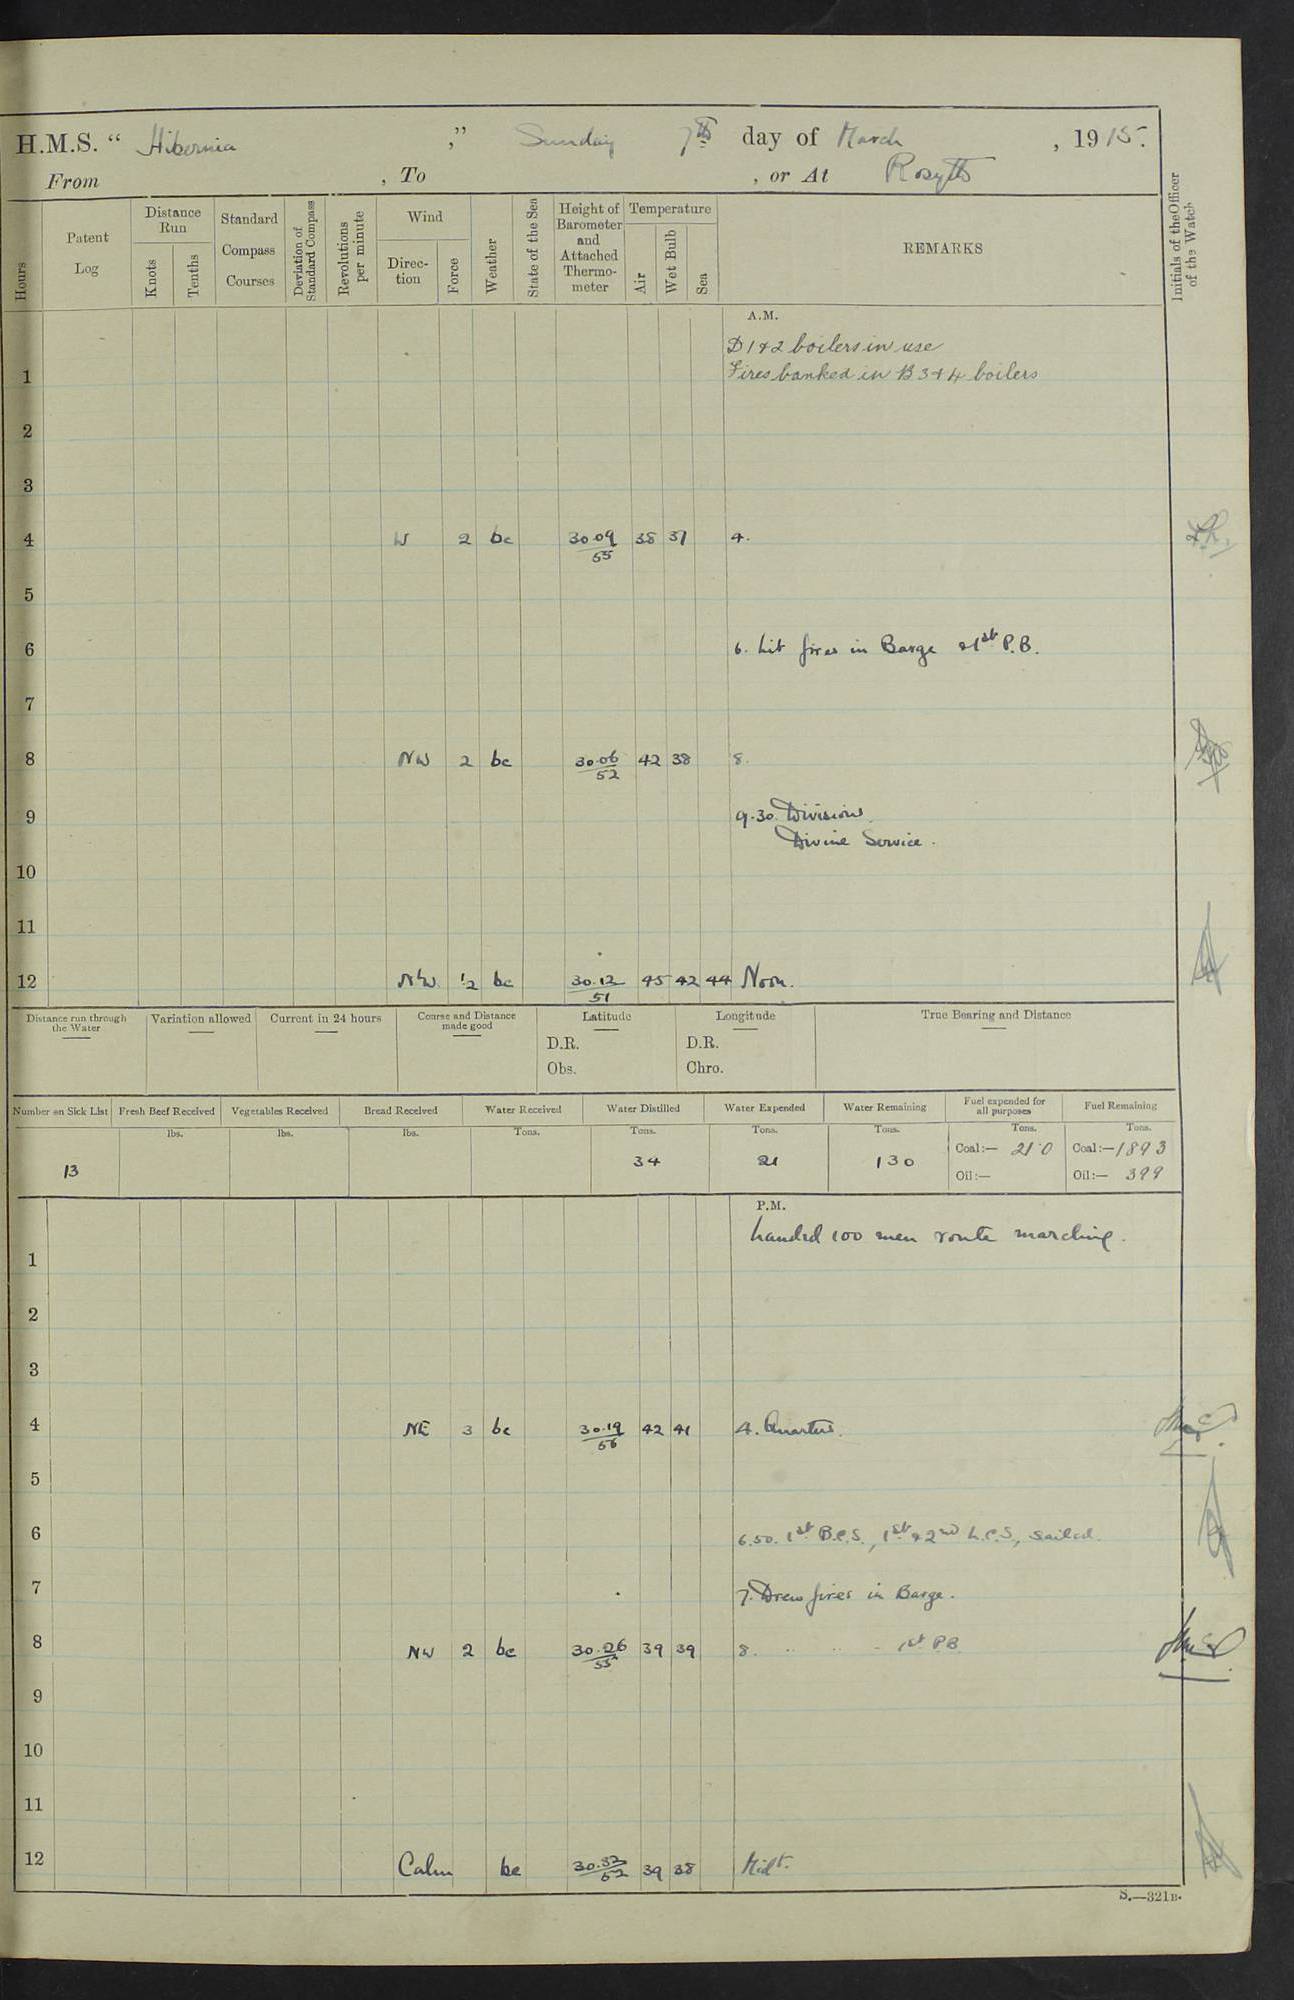 H.M.S. “ Hibernia ,” Sunday 7th day of March , 1915.
From , To , or At Rosyth
Hours
Patent Log
Distance Run
Knots
Tenths
Standard Compass Courses
Deviation of Standard Compass
Revolutions per minute
Wind
Direc-tion
Force
Weather
State of the Sea
Height of Barometer and Attached Thermo-meter
Temperature
Air
Wet Bulb
Sea
REMARKS
Initials of the Officer of the Watch
A.M.
D 1 & 2 boilers in use
1 Fires banked in B 3 & 4 boilers
2
3
4 W 2 bc 30.09 38 37 4.
55
5
6 6. Lit fires in Barge & 1st P.B.
7
8 NW 2 bc 30.06 42 38 8.
52
9 9.30. Divisions.
Divine Service.
10
11
12 NW 1/2 bc 30.12 45 42 44 Noon.
51
Distance run through the Water
Variation allowed
Current in 24 hours
Course and Distance made good
Latitude
D.R.
Obs.
Longitude
D.R.
Chro.
True Bearing and Distance
Number on Sick List Fresh Beef Received Vegetables Received Bread Received Water Received Water Distilled Water Expended Water Remaining Fuel expended for all purposes Fuel Remaining
lbs. lbs. lbs. Tons. Tons. Tons. Tons. Tons. Tons.
13 34 21 130 Coal:— 21.0 Coal:— 1893
Oil:— Oil:— 399
P.M.
Landed 100 men route marching.
1
2
3
4 NE 3 bc 30.19 42 41 4. Quarters.
56
5
6 6.50. 1st B.C.S., 1st & 2nd L.C.S, sailed.
7 7. Drew fires in Barge.
8 NW 2 bc 30.26 39 39 8. " " " 1st P.B.
55
9
10
11
12 Calm bc 30.32 39 38 Midt.
52
S.—321B.